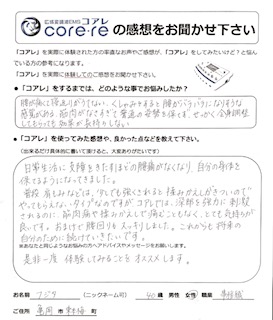 広域変調波EMS
コアレ
core·re の感想をお聞かせ下さい
「コアレ」を実際に体験された方の率直なお声やご感想が、「コアレ」をしてみたいけど？と悩ん
でいる方の参考になります。
「コアレ」を実際に体験してのご感想をお聞かせ下さい。
●「コアレ」をするまでは、どのような事でお悩みでしたか？
腰が痛くて寝返りがうてない、くしゃみをすると腰がバラバラになりそうな
感覚がある。筋肉がなさすぎて普通の姿勢を保てず、せっかく全身調整
してもらっても効果が長持ちしない
●「コアレ」を使ってみた感想や、良かった点などを教えて下さい。
（出来るだけ具体的に書いて頂けると、大変ありがたいです）
日常生活に支障をきたすほどの腰痛がなくなり、自分の身体を
保てるようになってきました。
普段、肩もみなどは、少しでも強くされると揉みかえしがきついので
やってもらえないタイプなのですが、コアレでは、深部を強力に刺激
されるのに、筋肉痛や揉みかえしで痛むこともなく、とても気持ちが
良いです。おまけで腰回りもスッキリしました。これからも将来の
自分のために続けていきたいです。
●あなたと同じようなお悩みの方へアドバイスやメッセージをお願いします。
是非一度体験してみることをオススメします。
お名前 フジタ （ニックネーム可） 40歳 男性 女性 職業 事務職
ご住所 亀岡 市 町